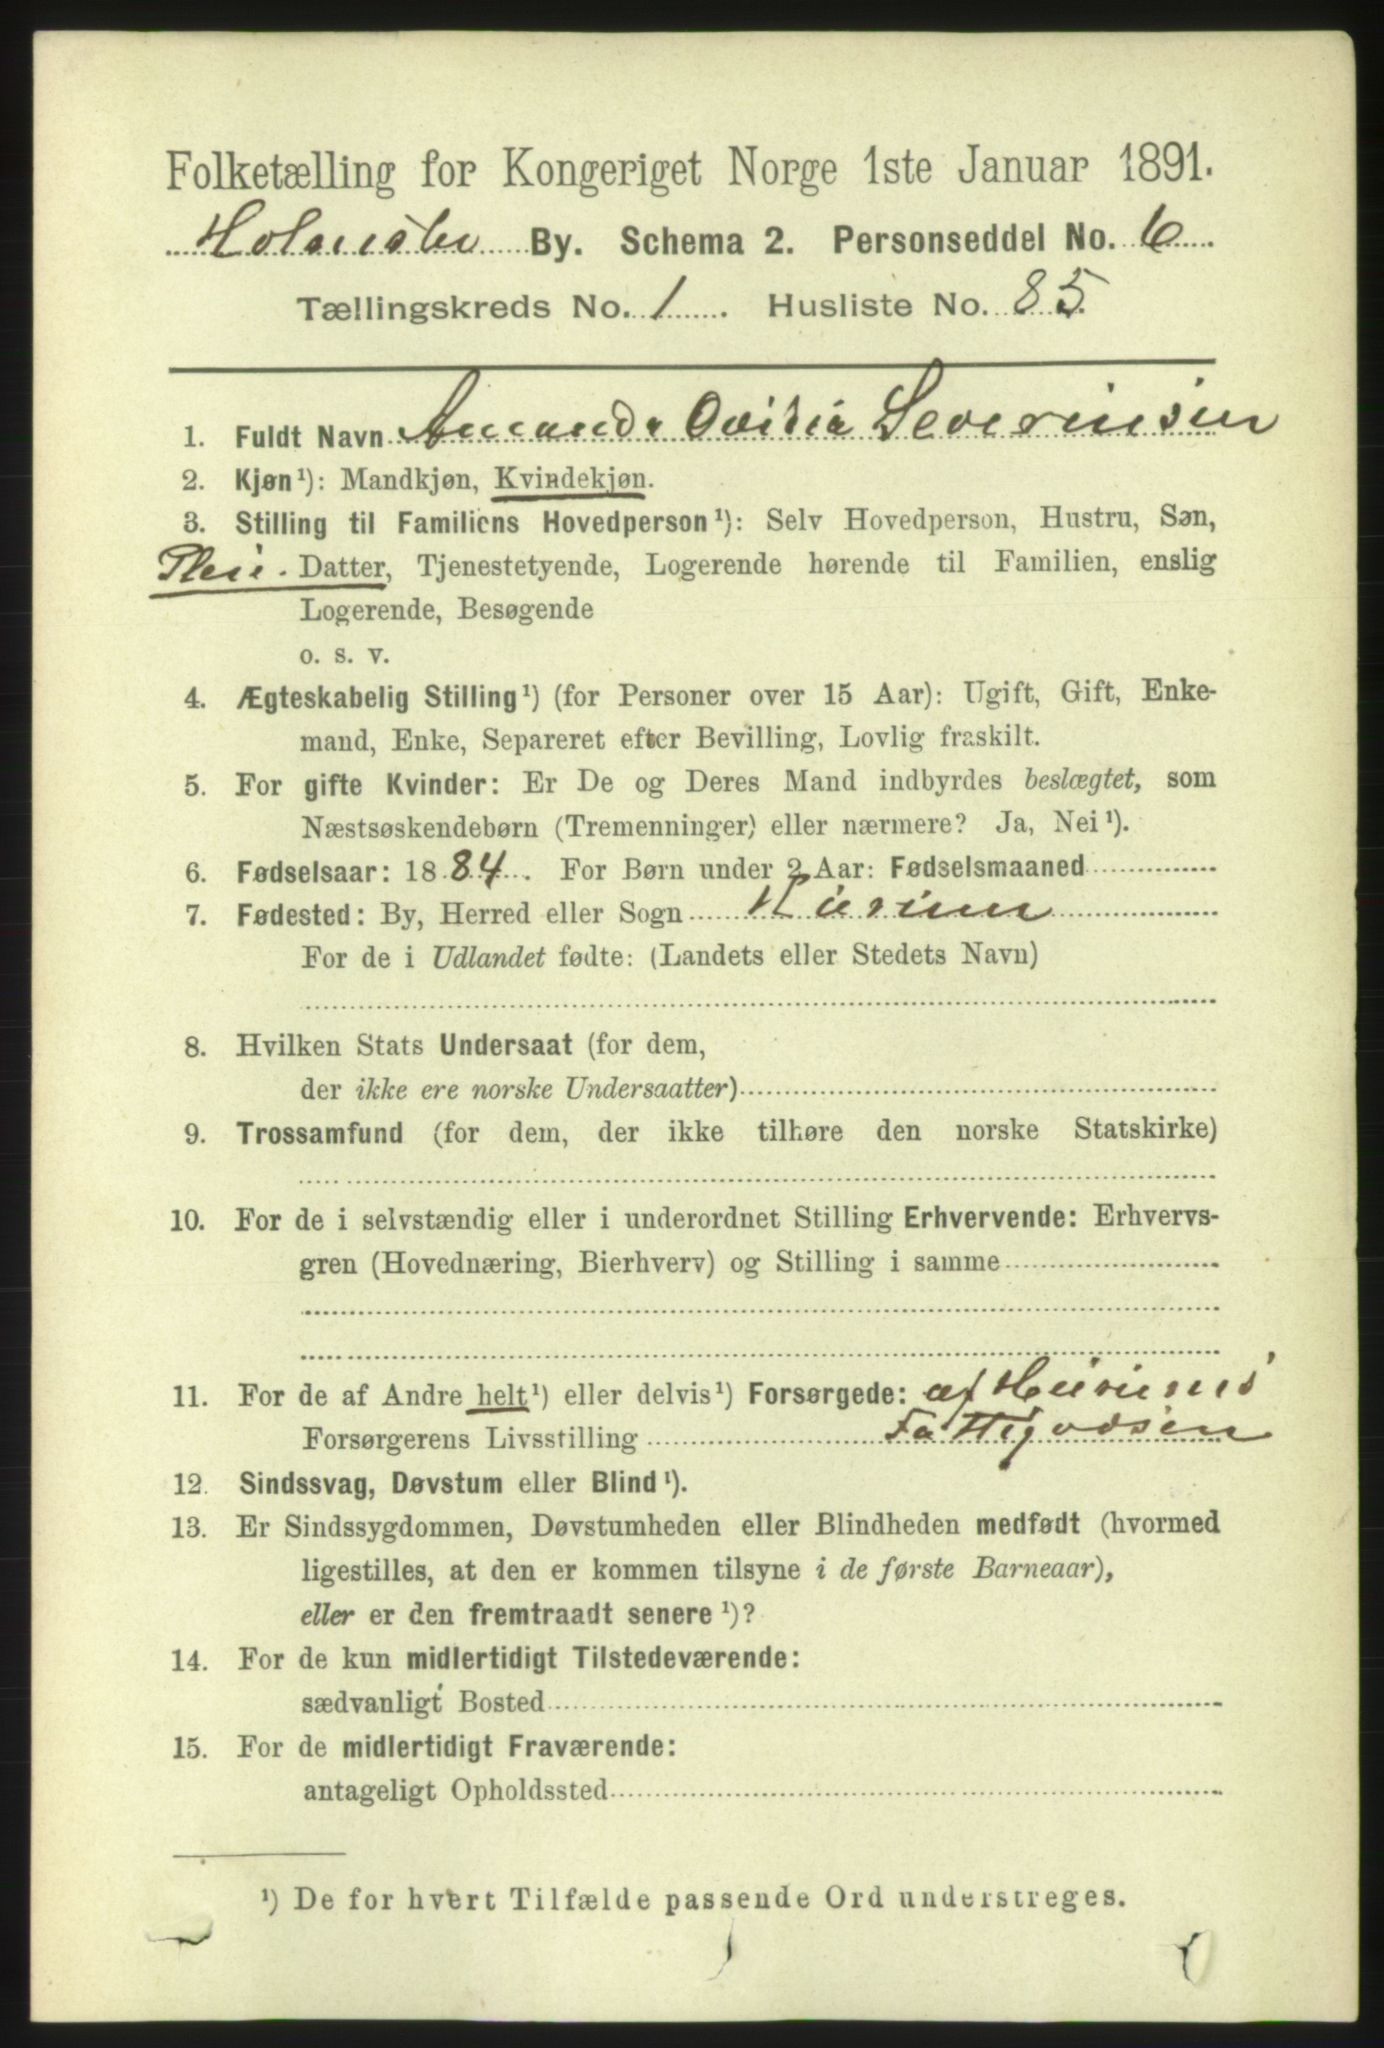 Folketælling for Kongeriget Norge 1ste Januar 1891.
Holmsbu By. Schema 2. Personseddel No. 6
Tællingskreds No. 1. Husliste No. 85
1. Fuldt Navn Amanda Severinsen
2. Kjøn¹): Mandkjøn, Kvindekjøn.
3. Stilling til Familiens Hovedperson¹): Selv Hovedperson, Hustru, Søn,
Pleie- Datter, Tjenestetyende, Logerende hørende til Familien, enslig
Logerende, Besøgende
o. s. v.
4. Ægteskabelig Stilling¹) (for Personer over 15 Aar): Ugift, Gift, Enke-
mand, Enke, Separeret efter Bevilling, Lovlig fraskilt.
5. For gifte Kvinder: Er De og Deres Mand indbyrdes beslægtet, som
Næstsøskendebørn (Tremenninger) eller nærmere? Ja, Nei¹).
6. Fødselsaar: 1884. For Børn under 2 Aar: Fødselsmaaned
7. Fødested: By, Herred eller Sogn Hurum
For de i Udlandet fødte: (Landets eller Stedets Navn)
8. Hvilken Stats Undersaat (for dem,
der ikke ere norske Undersaatter)
9. Trossamfund (for dem, der ikke tilhøre den norske Statskirke)
10. For de i selvstændig eller i underordnet Stilling Erhvervende: Erhvervs-
gren (Hovednæring, Bierhverv) og Stilling i samme
11. For de af Andre helt¹) eller delvis¹) Forsørgede: af Hurums
Forsørgerens Livsstilling Fattigvæsen
12. Sindssvag, Døvstum eller Blind¹).
13. Er Sindssygdommen, Døvstumheden eller Blindheden medfødt (hvormed
ligestilles, at den er kommen tilsyne i de første Barneaar),
eller er den fremtraadt senere¹)?
14. For de kun midlertidigt Tilstedeværende:
sædvanligt Bosted
15. For de midlertidigt Fraværende:
antageligt Opholdssted
¹) De for hvert Tilfælde passende Ord understreges.